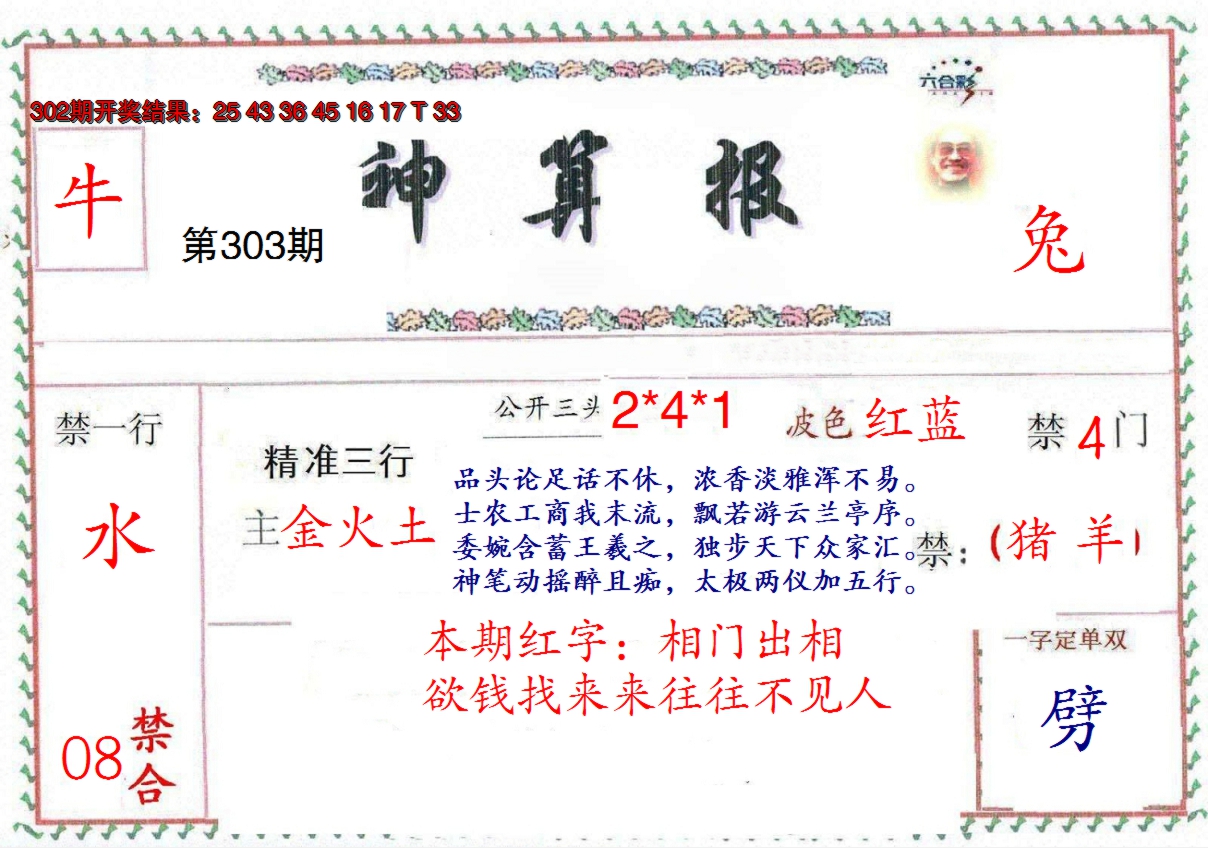 六合彩
302期开奖结果：25 43 36 45 16 17 T 33
牛
神算报
第303期
兔
禁一行
水
08
禁合
精准三行
主金火土
公开三头 2*4*1
波色 红蓝
禁4门
品头论足话不休，浓香淡雅浑不易。
士农工商我末流，飘若游云兰亭序。
委婉含蓄王羲之，独步天下众家汇。
神笔动摇醉且痴，太极两仪加五行。
禁：(猪 羊)
本期红字：相门出相
欲钱找来来往往不见人
一字定单双
劈